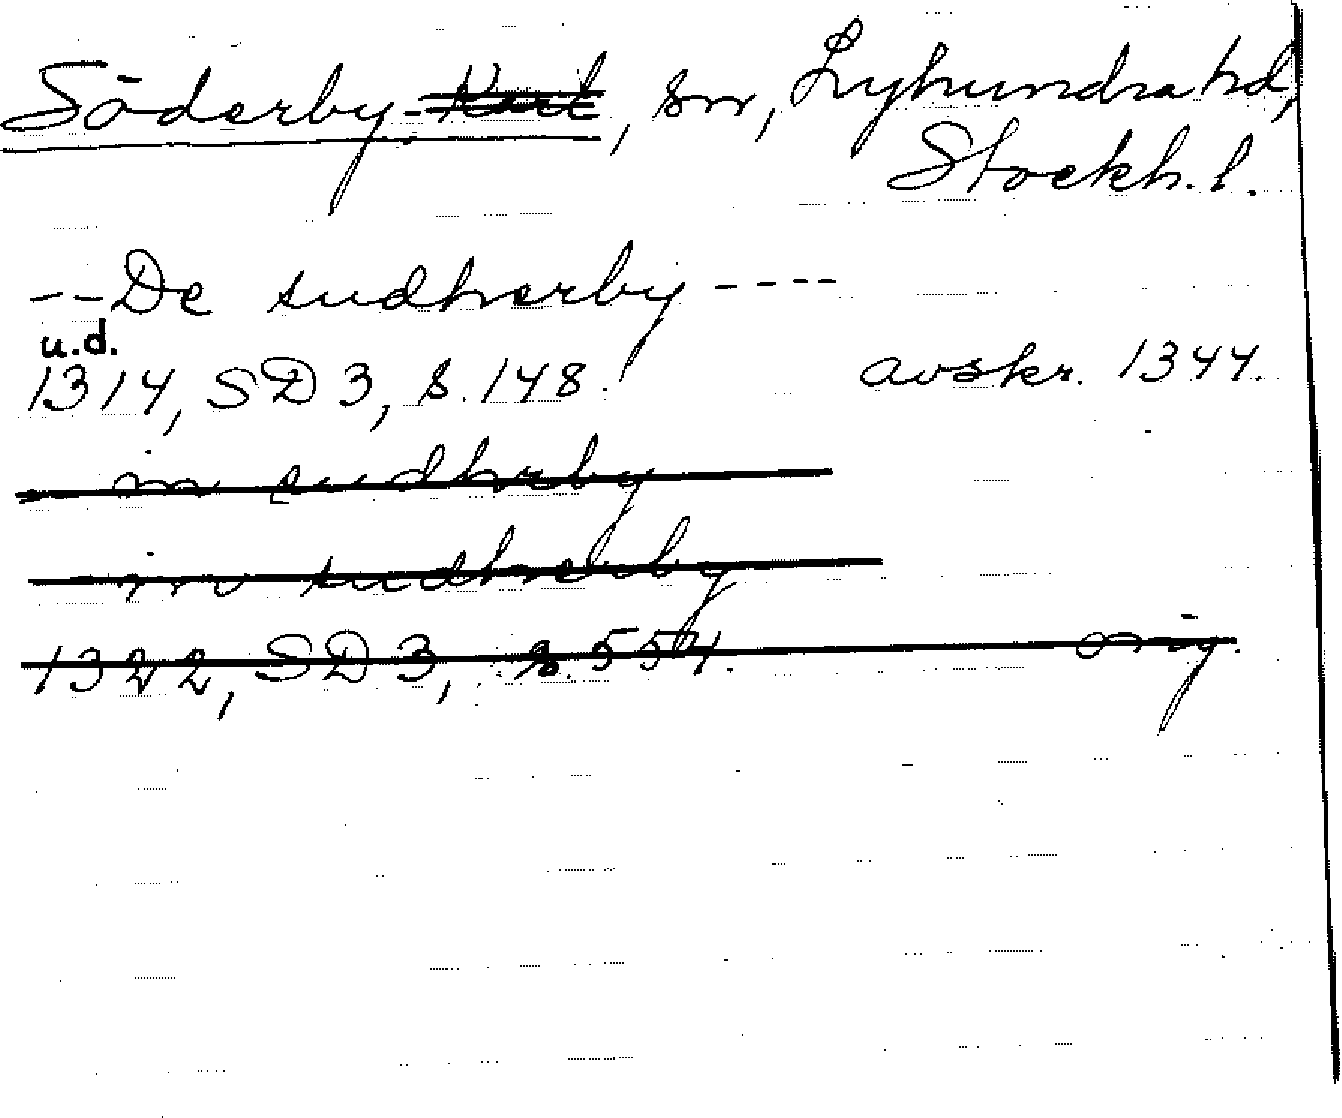 Söderby-Karl, sn, Lyhundra hd,
Stockh. l.
--De sudherby ----
u.d.
1314, SD 3, s. 148. avskr. 1344.
in sudhrby
in sudherby
1322, SD 3, s. 554. orig.